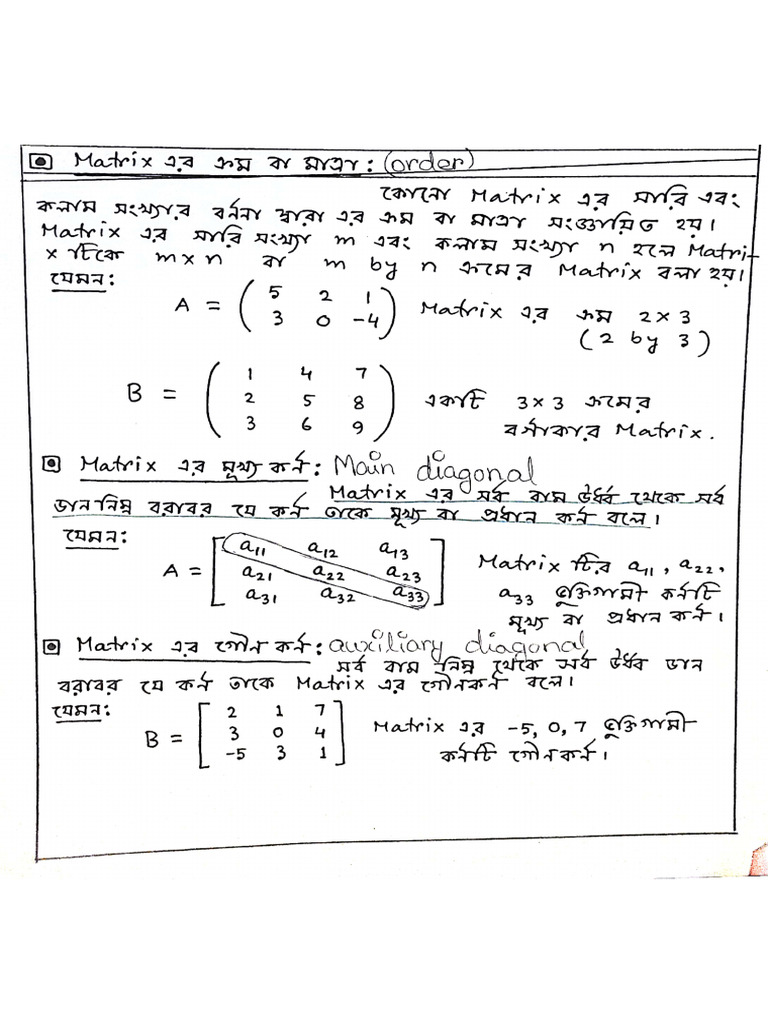 Matrix এর ক্রম বা মাত্রা : (order)
কোনো Matrix এর সারি এবং
কলাম সংখ্যার বর্ননা দ্বারা এর ক্রম বা মাত্রা সংজ্ঞায়িত হয়।
Matrix এর সারি সংখ্যা m এবং কলাম সংখ্যা n হলে Matri-
x টিকে m × n বা m by n ক্রমের Matrix বলা হয়।
যেমন:
A = ( 5 2 1
3 0 -4 ) Matrix এর ক্রম 2×3
(2 by 3)
B = ( 1 4 7
2 5 8
3 6 9 ) একটি 3×3 ক্রমের
বর্গাকার Matrix.
Matrix এর মূখ্য কর্ন : Main diagonal
Matrix এর সর্ব বাম উর্ধ্ব থেকে সর্ব
ডান নিম্ন বরাবর যে কর্ন তাকে মূখ্য বা প্রধান কর্ন বলে।
যেমন:
A = [ a11 a12 a13
a21 a22 a23
a31 a32 a33 ] Matrix টির a11, a22,
a33 ভুক্তিগামী কর্নটি
মূখ্য বা প্রধান কর্ন।
Matrix এর গৌন কর্ন : auxiliary diagonal
সর্ব বাম নিম্ন থেকে সর্ব উর্ধ্ব ডান
বরাবর যে কর্ন তাকে Matrix এর গৌনকর্ন বলে।
যেমন:
B = [ 2 1 7
3 0 4
-5 3 1 ] Matrix এর -5, 0, 7 ভুক্তিগামী
কর্নটি গৌনকর্ন।